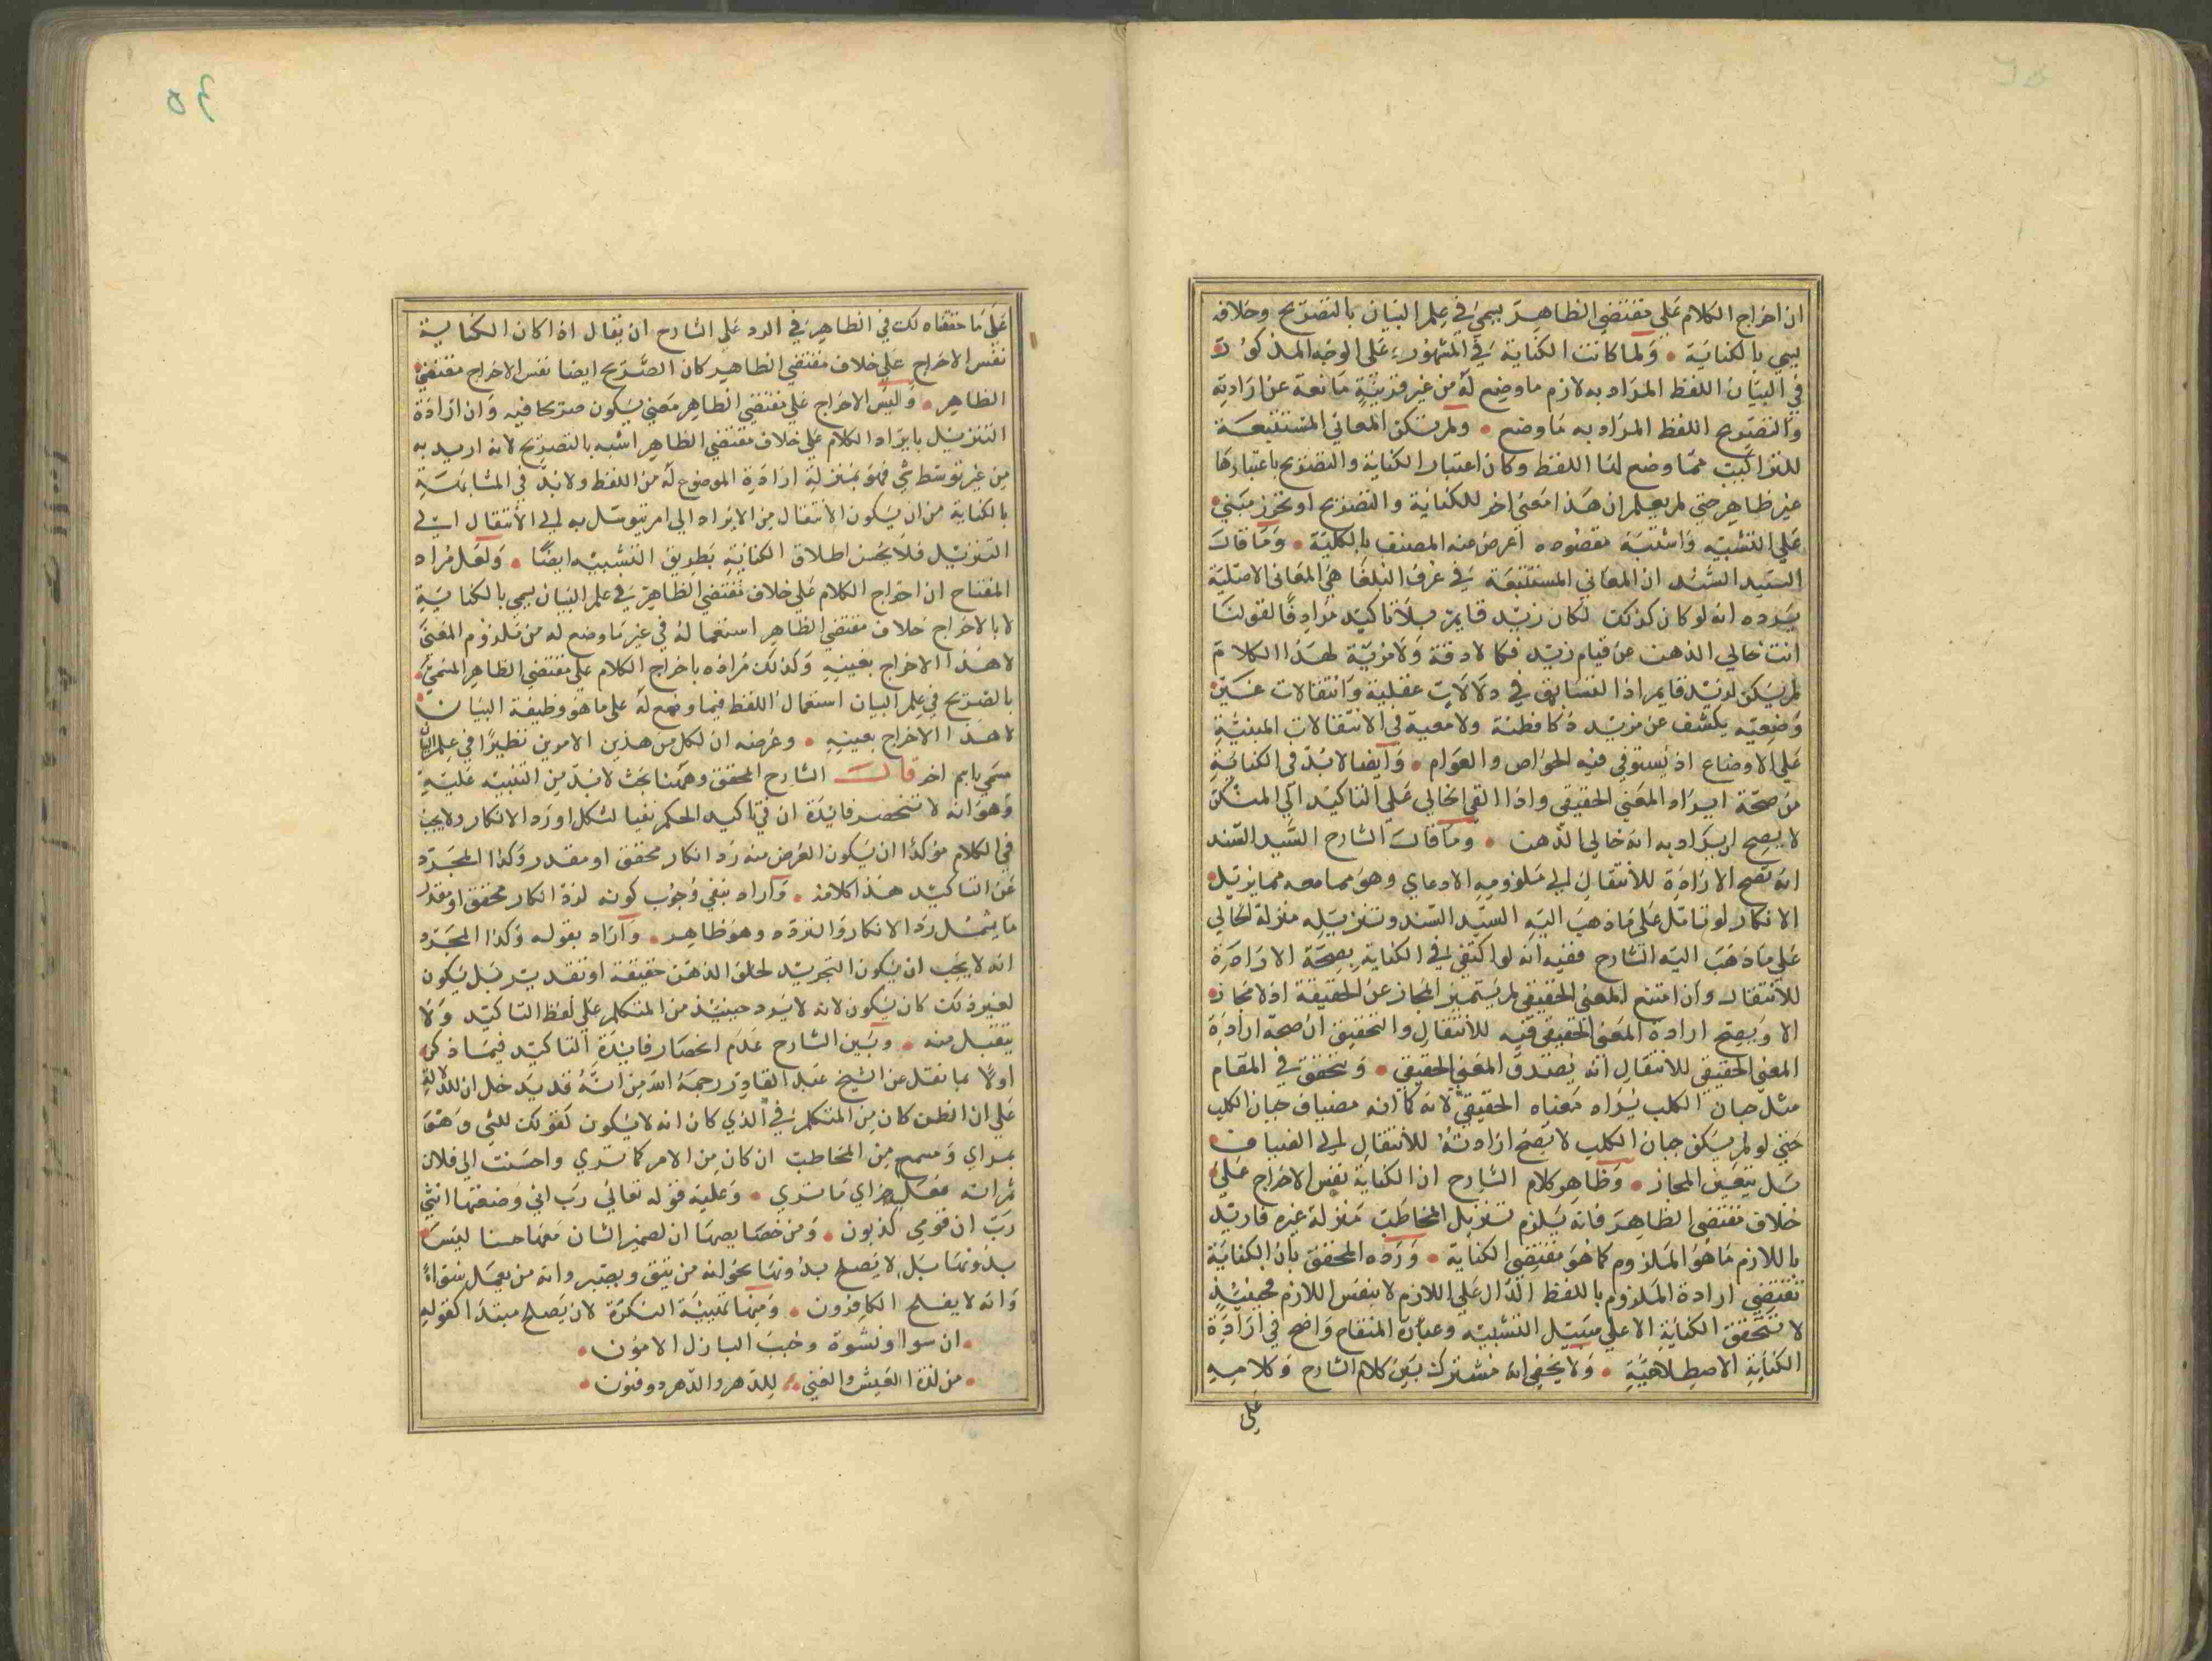 ان اخراج الكلام على مقتضى الظاهر يسمى في علم البيان بالتصريح وخلافه
يسمى بالكناية • ولما كانت الكناية في المشهور على الوجه المذكور
في البيان اللفظ المراد به لازم ما وضع له من غير قرينة مانعة عن ارادته
والتصريح اللفظ المراد به ما وضع • ولم تكن المعاني المستتبعة
للتراكيب مما وضع لها اللفظ وكان اعتبار الكناية والتصريح باعتبارها
غير ظاهر حتى لم يعلم ان هذا معنى اخر للكناية والتصريح او تجوز مبني
على التشبيه واشتبه مقصوده اعرض عنه المصنف بالكلية • وما قال
السيد السند ان المعاني المستتبعة في عرف البلغا هي المعاني الاصلية
يرده انه لو كان كذلك لكان زيد قايم بلا تاكيد مرادفا لقولنا
انت خالي الذهن عن قيام زيد فكما لا دقة ولا مزية لهذا الكلام
لم يكن لزيد قايم اذ التسابق في دلالات عقلية وانتقالات غير
وضعية يكشف عن مزيد ذكا فطنة ولا معية في الانتقالات المبنية
على الاوضاع اذ يستوفي فيه الخواص والعوام • وايضا لا بد في الكناية
من صحة ايراد المعنى الحقيقي واذا القي الخالي على التاكيد الى المنكر
لا يصح ان يراد به انه خالي الذهن • وما قال الشارح السيد السند
انه تصح الارادة للانتقال الى ملزومه الادعاي وهو ممامعه مما يزيل
الانكار لو تامل على ما ذهب اليه السيد السند وتنزيله منزلة الخالي
على ما ذهب اليه الشارح ففيه انه لو اكتفي في الكناية بصحة الارادة
للانتقال وان امتنع المعنى الحقيقي لم يتميز المجاز عن الحقيقة اذ لا مجاز
الا ويصح ارادة المعنى الحقيقي فيه للانتقال والتحقيق ان صحة ارادة
المعنى الحقيقي للانتقال انه يصدق المعنى الحقيقي • ويتحقق في المقام
مثل جبان الكلب يراد معناه الحقيقي لانه كما انه مضياف جبان الكلب
حتى لو لم يكن جبان الكلب لا يصح ارادته للانتقال الى المضياف
بل يتعين المجاز • وظاهر كلام الشارح ان الكناية نفس الاخراج على
خلاف مقتضى الظاهر فانه يلزم تنزيل المخاطب منزلة غيره فاريد
باللازم ما هو الملزوم كما هو مقتضى الكناية • ورده المحقق بان الكناية
تقتضي ارادة الملزوم باللفظ الدال على اللازم لا بنفس اللازم فحينئذ
لا تتحقق الكناية الا على سبيل التشبيه وعبارة المفتاح واضح في ارادة
الكناية الاصطلاحية • ولا يخفى انه مشترك بين كلام الشارح وكلامه
على
على ما حققناه لك في الظاهر في الرد على الشارح ان يقال اذا كان الكناية
نفس الاخراج على خلاف مقتضى الظاهر كان الصريح ايضا نفس الاخراج مقتضى
الظاهر • وليس الاخراج على مقتضى الظاهر معنى يكون صريحا فيه وان ارادة
التنزيل بايراد الكلام على خلاف مقتضى الظاهر اشبه بالتصريح لانه اريد به
من غير توسط شي فهو بمنزلة ارادة الموضوع له من اللفظ ولا بد في المشابهة
بالكناية من ان يكون الانتقال من الايراد الى امر يتوسل به الى الانتقال الى
التنزيل فلا يحسن اطلاق الكناية بطريق التشبيه ايضا • ولعل مراد
المفتاح ان اخراج الكلام على خلاف مقتضى الظاهر في علم البيان يسمى بالكناية
لا بالاخراج خلاف مقتضى الظاهر استعماله في غير ما وضع له من ملزوم المعنى
لا هذا الاخراج بعينه وكذلك مراده باخراج الكلام على مقتضى الظاهر المسمى
بالصريح في علم البيان استعمال اللفظ فيما وضع له على ما هو وظيفة البيان
لا هذا الاخراج بعينه • وغرضه ان لكل من هذين الامرين نظيرا في علم البيان
مسمى باسم اخر قال الشارح المحقق وههنا بحث لا بد من التنبيه عليه
وهو انه لا تنحصر فايدة ان في تاكيد الحكم نفيا لشك او رد الانكار ولا يجب
في الكلام مؤكدا ان يكون الغرض منه رد انكار محقق او مقدر وكذا المجرد
عن التاكيد هذا كلامه • واراد بنفي وجوب كونه لرد انكار محقق او مقدر
ما يشمل رد الانكار والتردد وهو ظاهر • واراد بقوله وكذا المجرد
انه لا يجب ان يكون التجريد لخلو الذهن حقيقة او تقديرا بل يكون
لغير ذلك كان يكون لانه لا يرد حينئذ من المتكلم على لفظ التاكيد ولا
يتقبل منه • وبين الشارح عدم انحصار فايدة التاكيد فيما ذكر
اولا بما نقل عن الشيخ عبد القادر رحمه الله من انه قد يدخل ان للدلالة
على ان الظن كان من المتكلم في الذي كان انه لا يكون كقولك للشي وهو
بمراي ومسمع من المخاطب ان كان من الامر كما ترى واحسنت الى فلان
ثم انه فعل جزاي ما ترى • وعليه قوله تعالى رب اني وضعتها انثى
رب ان قومي كذبون • ومن خصايصها ان لضمير الشان معها حسنا ليس
بدونها بل لا يصلح بدونها نحو انه من يتق ويصبر وانه من يعمل سواء
وانه لا يفلح الكافرون • ومنها تهيئة النكرة لان يصلح مبتدا كقوله
• ان شواء ونشوة وخبب البازل الامون •
• من لذة العيش والفتى • للدهر والدهر ذو فنون •